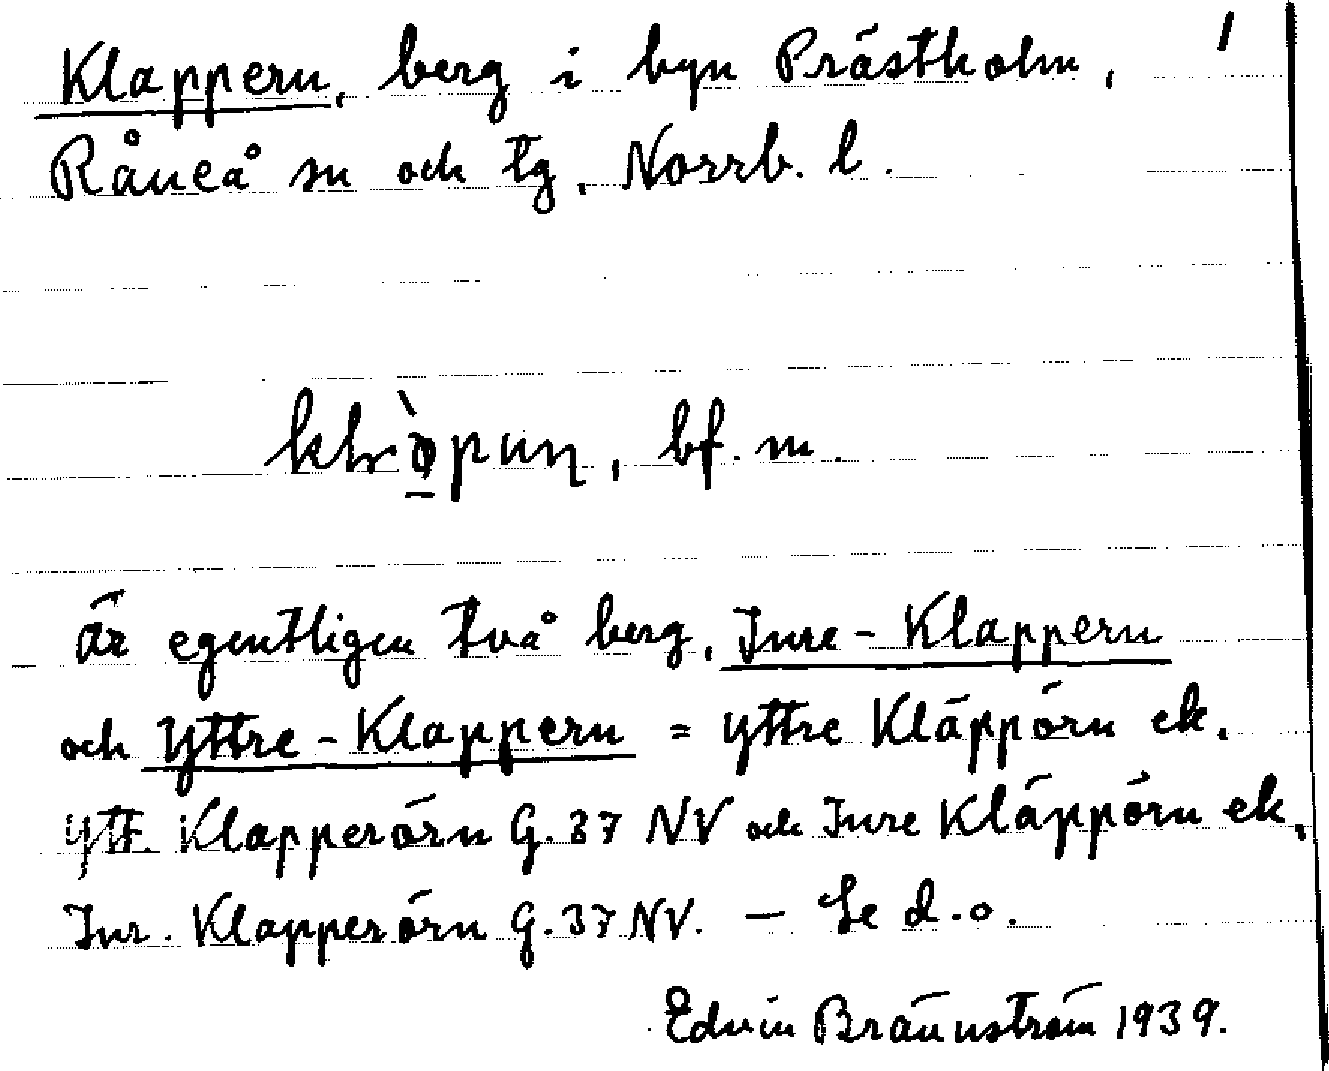 Klappern, berg i byn Prästholm, 1
Råneå sn och tg, Norrb. l.
bf. m.
är egentligen två berg, Inre-Klappern
och Yttre-Klappern = Yttre Kläppörn ek.
Ytt. Klapperörn G.37 NV och Inre Kläppörn ek.
Inr. Klapperörn G.37 NV. — Se d.o.
Edvin Brännström 1939.